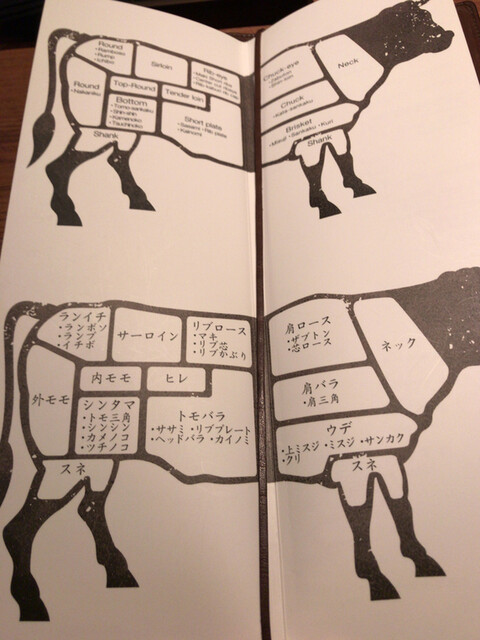 Round
•Ramboso
•Rump
•Ichibo
Sirloin
Rib-eye
Chuck-eye
•Zabuton
•Shin-loin
Neck
Round
•Nakaniku
Top-Round
Tender loin
Bottom
•Tomo-sankaku
•Shin-shin
•Kamenoko
•Tsuchinoko
Short plate
•Sasami •Rib plate
•Kainomi
Chuck
•Kata-sankaku
Brisket
•Misuji •Sankaku •Kuri
Shank
Shank
ランイチ
・ランボソ
・ランプ
・イチボ
サーロイン
リブロース
・マキ
・リブ芯
・リブかぶり
肩ロース
・ザブトン
芯ロース
ネック
外モモ
内モモ
ヒレ
シンタマ
・トモ三角
・シンシン
・カメノコ
・ツチノコ
トモバラ
・ササミ ・リブプレート
・ヘッドバラ ・カイノミ
肩バラ
・肩三角
ウデ
・上ミスジ ・ミスジ ・サンカク
・クリ
スネ
スネ